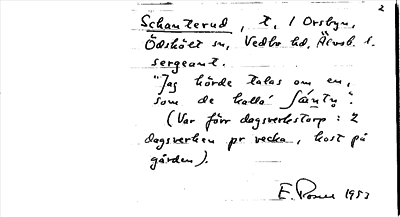 2
Schanterud, t. / Orsbyn,
Ödskölt sn, Vedbo hd, Älvsb. l.
sergeant.
"Jag hörde talas om en,
som de kalla´ Sánty".
(Var förr dagsverkstorp: 2
dagsverken pr vecka, kost på
gården).
E. 1953